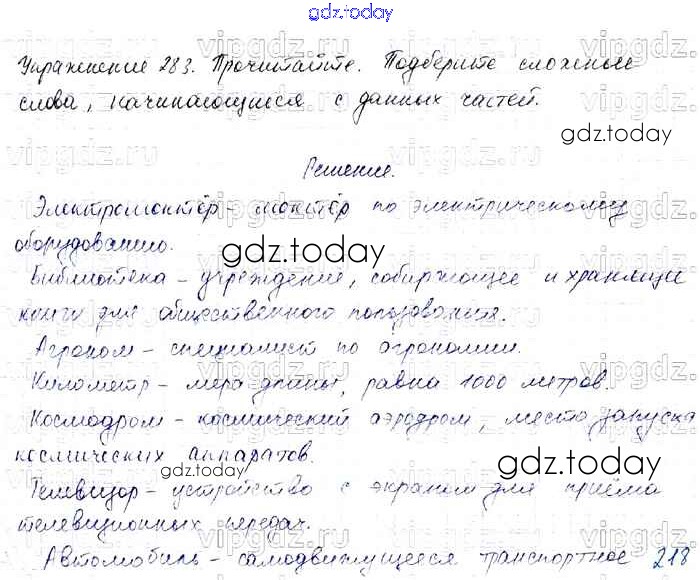 gdz.today
Упражнение 283. Прочитайте. Подберите сложные
слова, начинающиеся с данных частей.
gdz.today
Решение.
Электромонтёр – монтёр по электрическому
оборудованию.
gdz.today
Библиотека – учреждение, собирающее и хранящее
книги для общественного пользования.
Агроном – специалист по агрономии.
Километр – мера длины, равна 1000 метров.
Космодром – космический аэродром, место запуска
космических аппаратов.
gdz.today
gdz.today
Телевизор – устройство с экраном для приёма
телевизионных передач.
gdz.today
Автомобиль – самодвижущееся транспортное 218